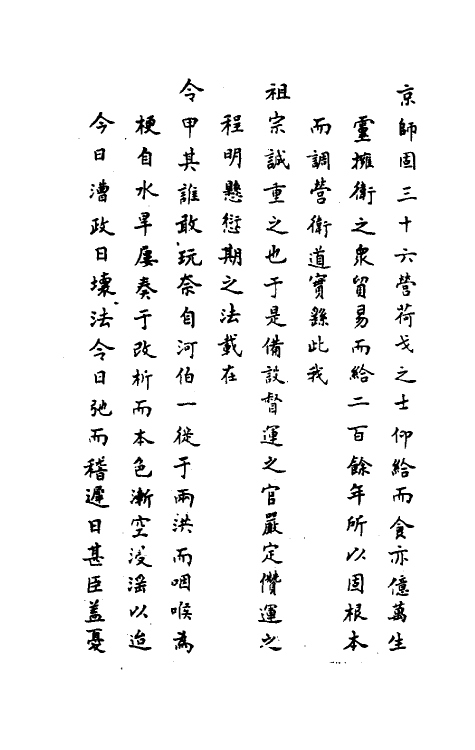 京師固三十六營荷戈之士仰給而食亦億萬生
靈擁衛之衆貿易而給二百餘年所以固根本
而調營衛道實繇此我
祖宗誠重之也于是備設督運之官嚴定儹運之
程明懸愆期之法載在
令甲其誰敢玩奈自河伯一徙于兩洪而咽喉為
梗自水旱屢奏于改析而本色漸空浸滛以迨
今日漕政日壞法令日弛而稽遲日甚臣盖憂